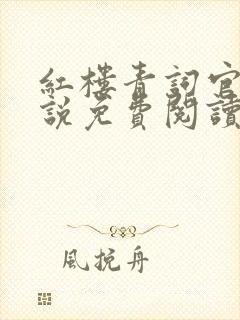 紅樓青詞官
說免費閱讀
風挽舟